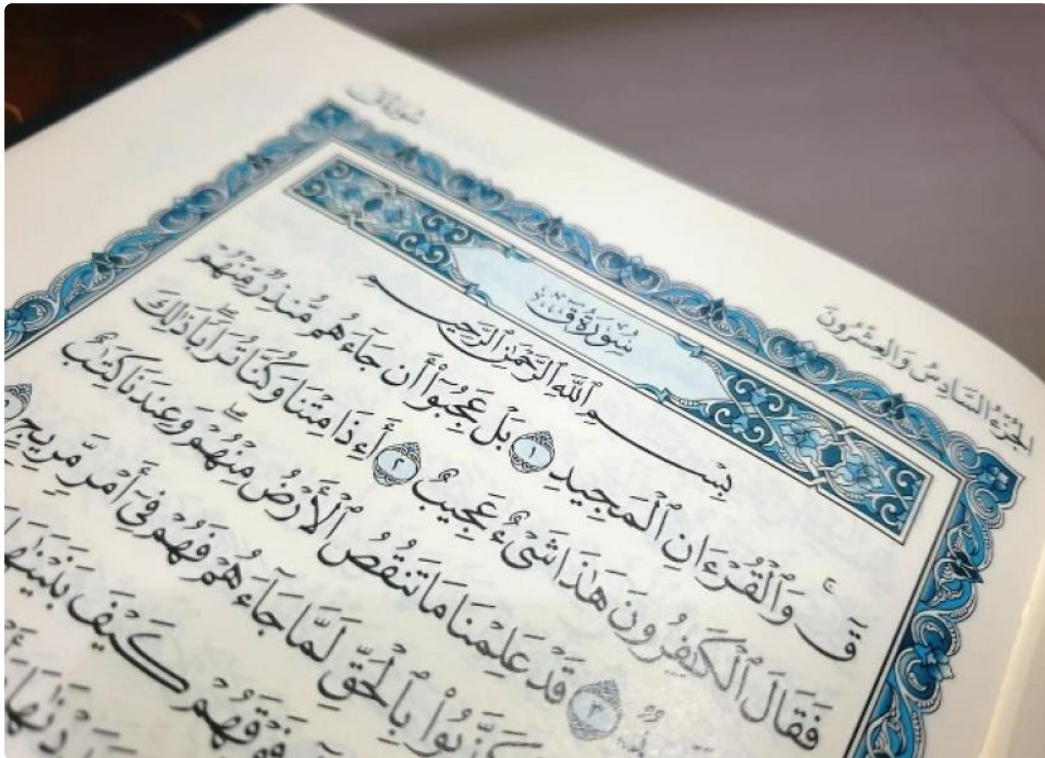 الجُزْءُ السَّادِسُ وَالعِشْرُونَ
سُورَةُ قٓ
سُورَةُ قٓ
بِسْمِ ٱللَّهِ ٱلرَّحْمَٰنِ ٱلرَّحِيمِ
قٓۚ وَٱلْقُرْءَانِ ٱلْمَجِيدِ ١ بَلْ عَجِبُوٓا۟ أَن جَآءَهُم مُّنذِرٌ مِّنْهُمْ
فَقَالَ ٱلْكَٰفِرُونَ هَٰذَا شَىْءٌ عَجِيبٌ ٢ أَءِذَا مِتْنَا وَكُنَّا تُرَابًا ۖ ذَٰلِكَ
٣ قَدْ عَلِمْنَا مَا تَنقُصُ ٱلْأَرْضُ مِنْهُمْ ۖ وَعِندَنَا كِتَٰبٌ
كَذَّبُوا۟ بِٱلْحَقِّ لَمَّا جَآءَهُمْ فَهُمْ فِىٓ أَمْرٍ مَّرِيجٍ
فَوْقَهُمْ كَيْفَ بَنَيْنَٰهَا